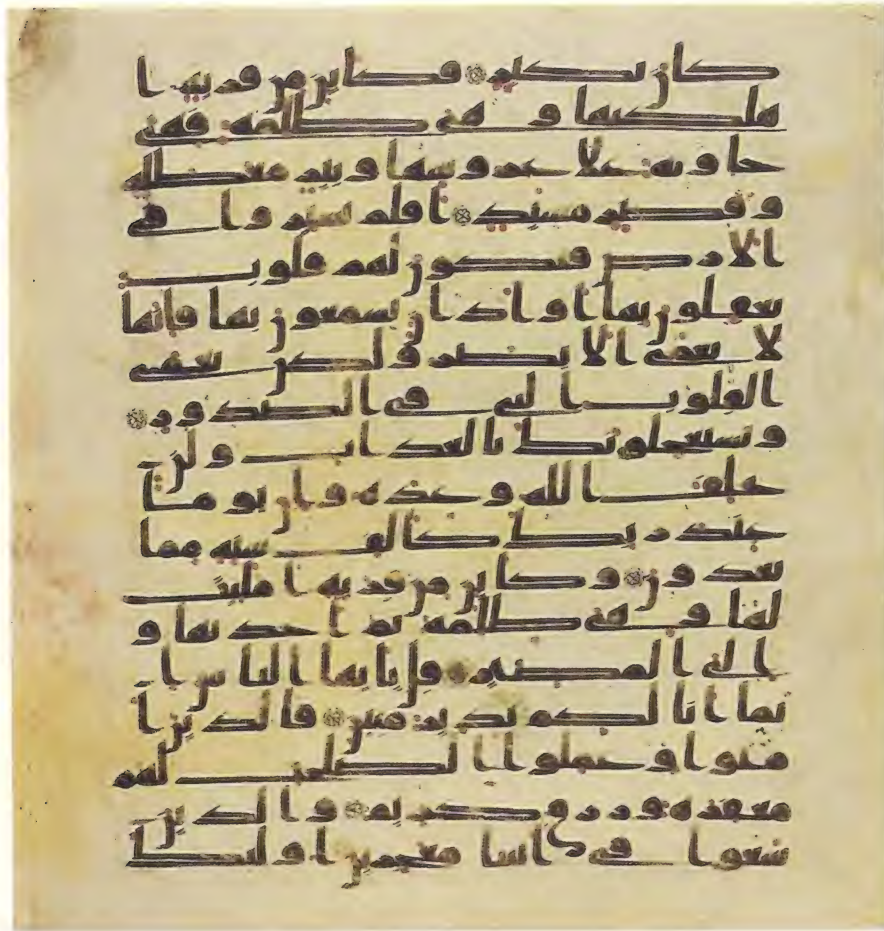 كان نكير فكاين من قرية ا
هلكنها و هي ظلمة فهي
خاوية على عروشها وبير معطلة
و قصر مشيد افلم يسيروا في
الارض فتكون لهم قلوب
يعقلون بها او اذان يسمعون بها فانها
لا تعمى الابصر ولكن تعمى
القلوب التي في الصدور
ويستعجلونك بالعذاب ولن
يخلف الله وعده وان يوما
عند ربك كالف سنة مما
تعدون وكاين من قرية امليت
لها وهي ظلمة ثم اخذتها و
الي المصير قل يايها الناس ا
نما انا لكم نذير مبين فالذين ا
منوا وعملوا الصلحت لهم
مغفرة ورزق كريم والذين
سعوا في ايتنا معجزين اوليك